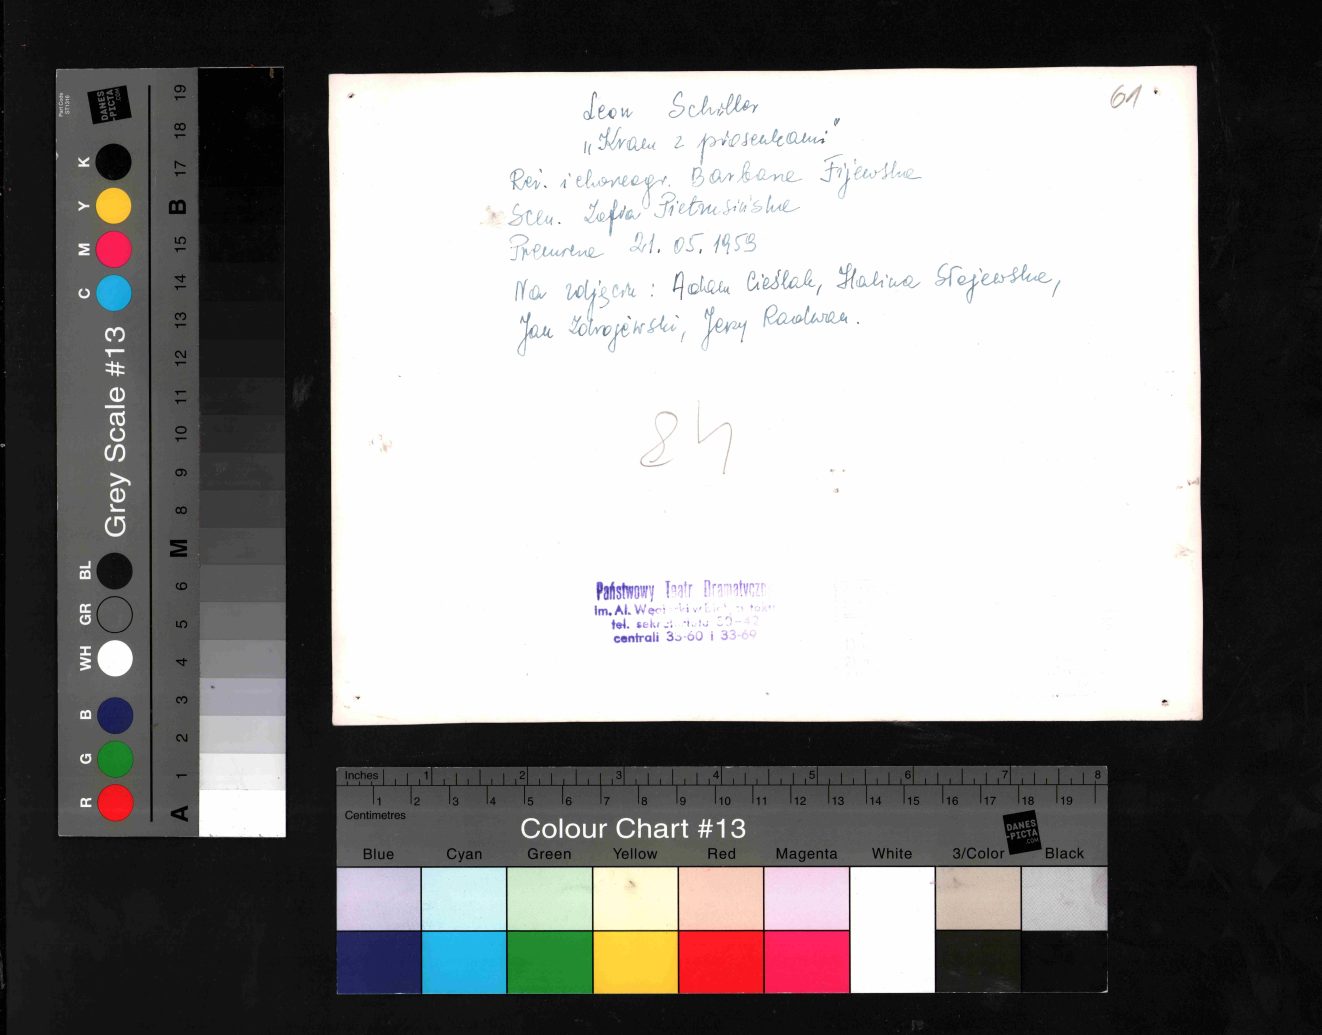 61
Leon Schiller
„Kram z piosenkami"
Reż. i choreogr. Barbara Fijewska
Scen. Zofia Pietrusińska
Premiera 21. 05. 1959
Na zdjęciu : Adam Cieślak, Halina Stojewska,
Jan Zdrojewski, Jerzy Radwan.
84
Państwowy Teatr Dramatyczn
im. Al. Węgierki w Białymstoku
tel. sekretariatu
centrali 33-60 i 33-69
Part Code
ST1316
DANES
-PICTA
.COM
K Y M C
Grey Scale #13
BL GR WH B G R
A 1 2 3 4 5 6 M 8 9 10 11 12 13 14 15 B 17 18 19
Inches 1 2 3 4 5 6 7 8
1 2 3 4 5 6 7 8 9 10 11 12 13 14 15 16 17 18 19
Centimetres
Colour Chart #13
DANES
-PICTA
.COM
Blue Cyan Green Yellow Red Magenta White 3/Color Black